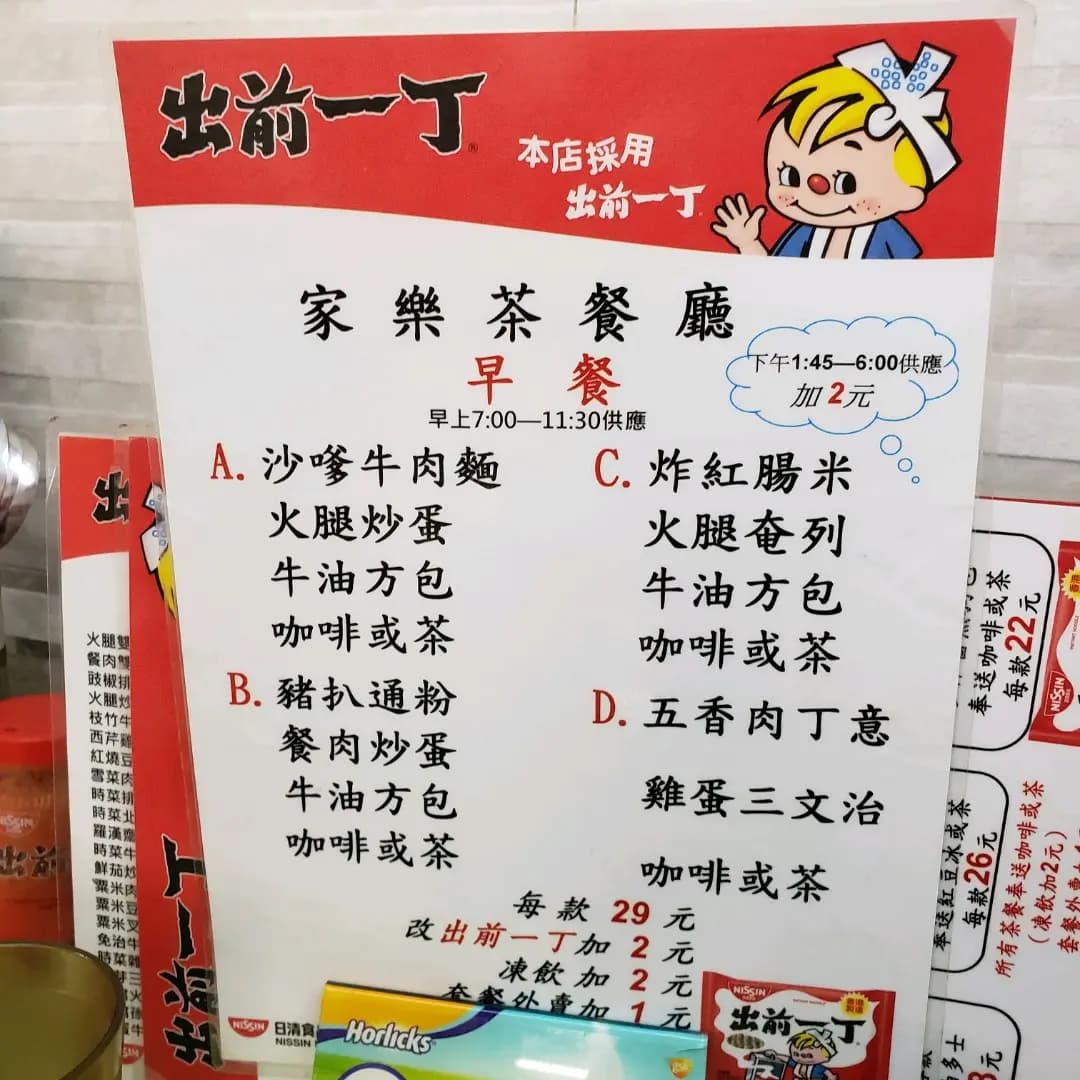 出前一丁
本店採用
出前一丁
家樂茶餐廳
早餐
早上7:00—11:30供應
下午1:45—6:00供應
加 2元
A. 沙嗲牛肉麵
火腿炒蛋
牛油方包
咖啡或茶
B. 豬扒通粉
餐肉炒蛋
牛油方包
咖啡或茶
C. 炸紅腸米
火腿奄列
牛油方包
咖啡或茶
D. 五香肉丁意
雞蛋三文治
咖啡或茶
每款 29 元
改出前一丁加 2 元
凍飲加 2 元
套餐外賣加 1 元
NISSIN 日清食
NISSIN
Horlicks
gsk
NISSIN
出前一丁
出
火腿雙
餐肉雙
豉椒排
火腿炒
枝竹牛
西芹雞
紅燒豆
雪菜肉
時菜排
時菜北
羅漢齋
時菜牛
鮮茄炒
粟米肉
粟米豆
粟米叉
免治牛
時菜雜
出前一丁
NISSIN
出前
奉送咖啡或茶
每款22元
NISSIN
奉送紅豆冰或茶
每款26元
所有茶餐奉送咖啡或茶
(凍飲加2元)
套餐外賣加
多士
元